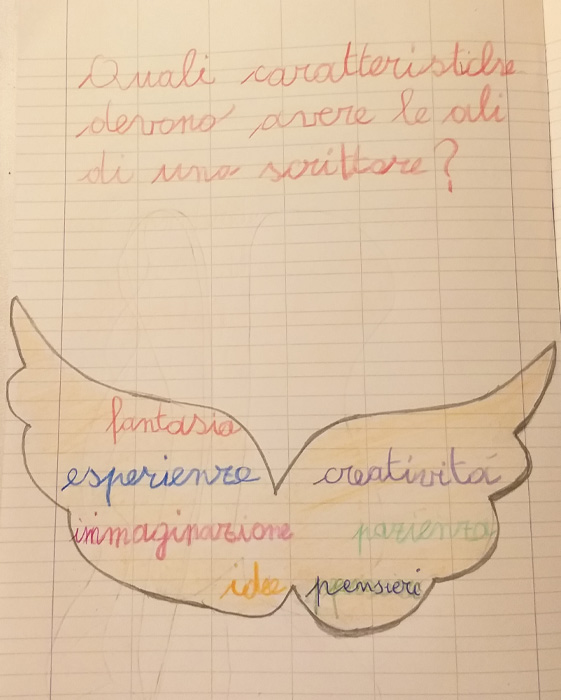 Quali caratteristiche
devono avere le ali
di uno scrittore?
fantasia
esperienze creatività
immaginazione pazienza
idee pensieri